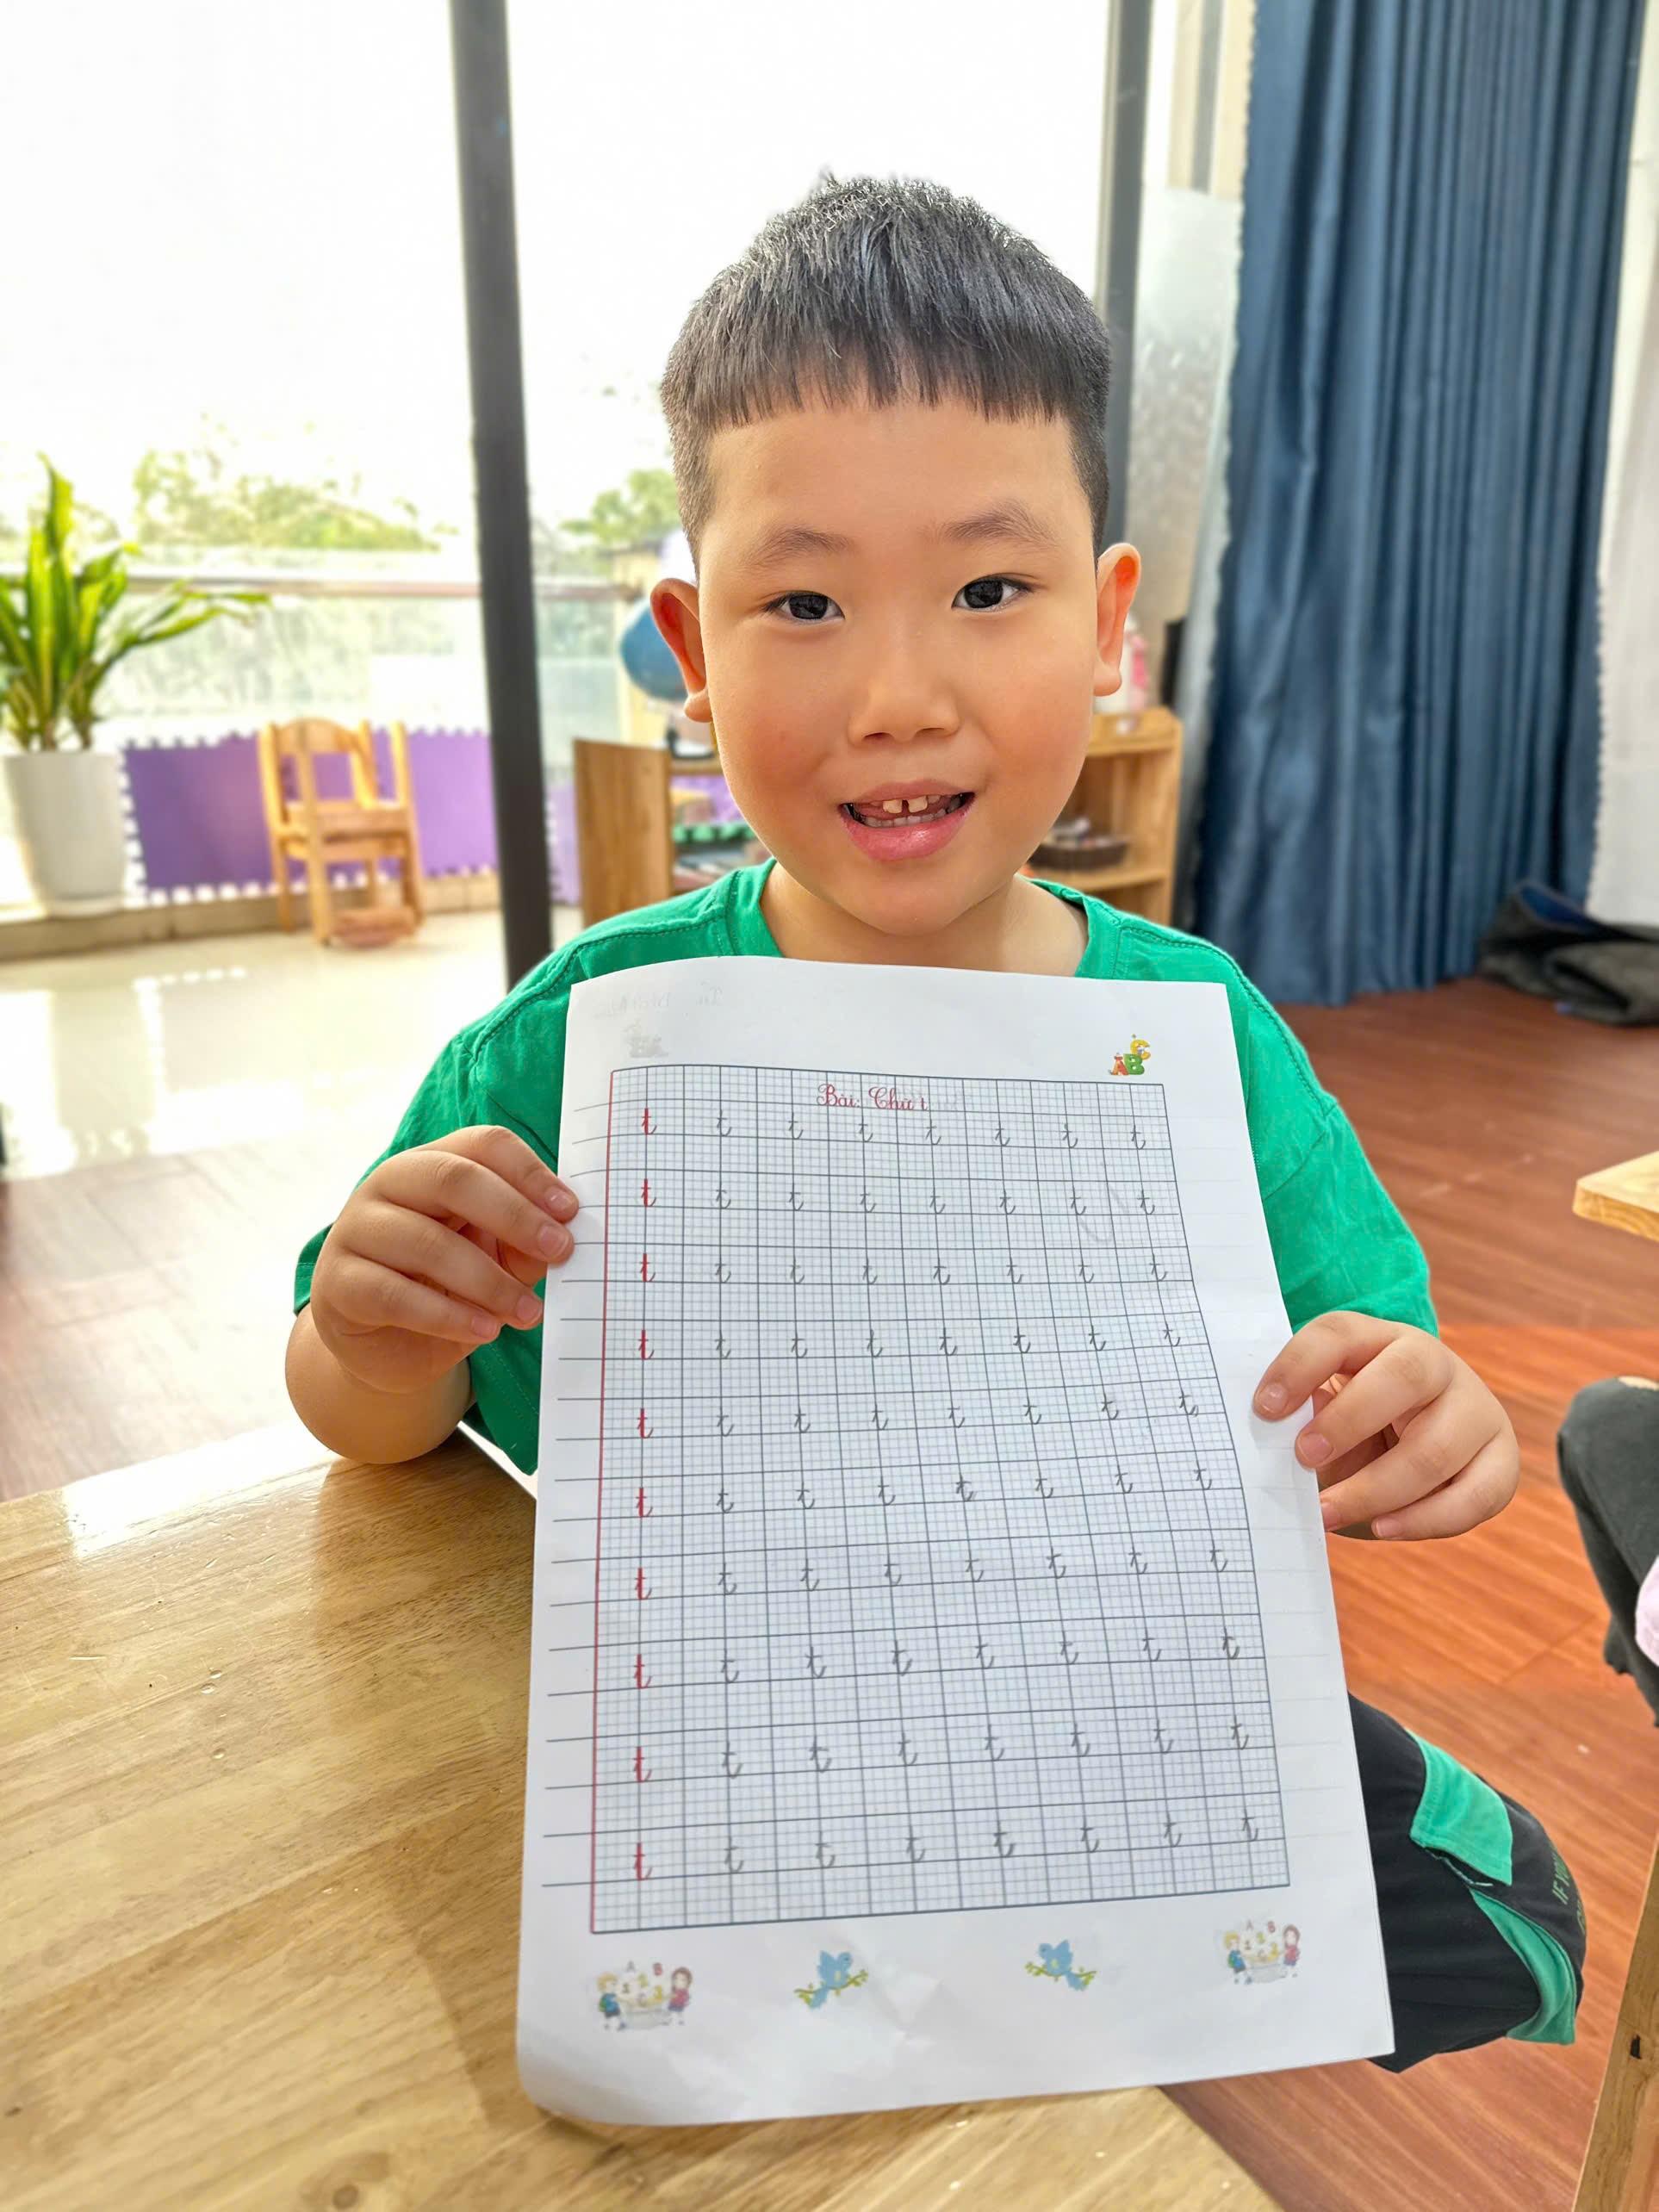 ABC
Bài: Chữ t
t t t t t t t t
t t t t t t t t
t t t t t t t t
t t t t t t t t
t t t t t t t t
t t t t t t t t
t t t t t t t t
t t t t t t t t
t t t t t t t t
t t t t t t t t
A B
A B